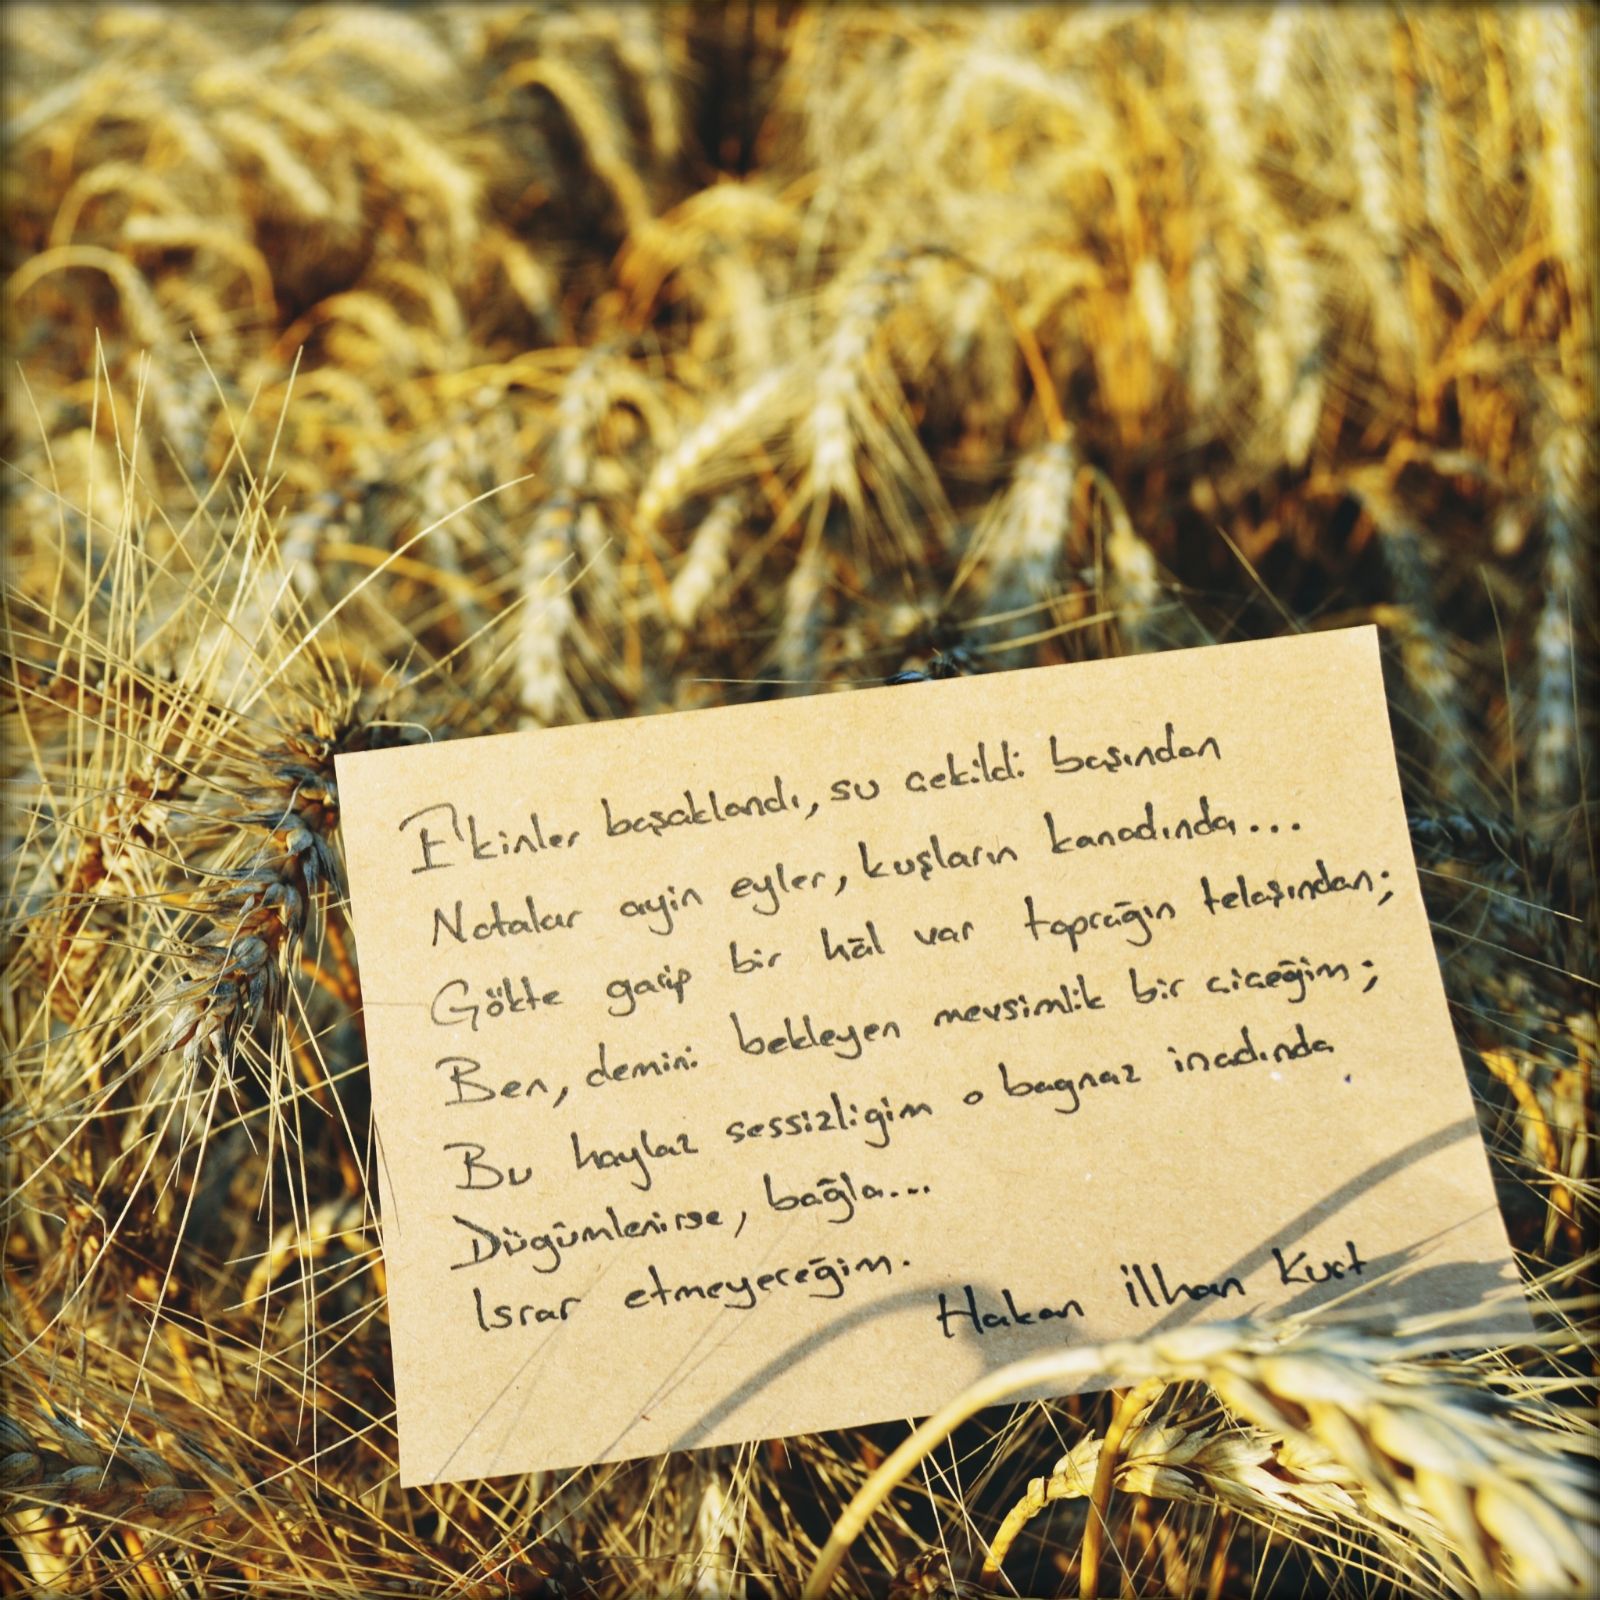 Ekinler başaklandı, su çekildi başından
Notalar ayin eyler, kuşların kanadında...
Gökte garip bir hâl var toprağın telaşından;
Ben, demini bekleyen mevsimlik bir çiçeğim;
Bu haylaz sessizligim o bagnaz inadında
Dügümlenirse, bağla...
Israr etmeyeceğim.
Hakan ilhan Kurt